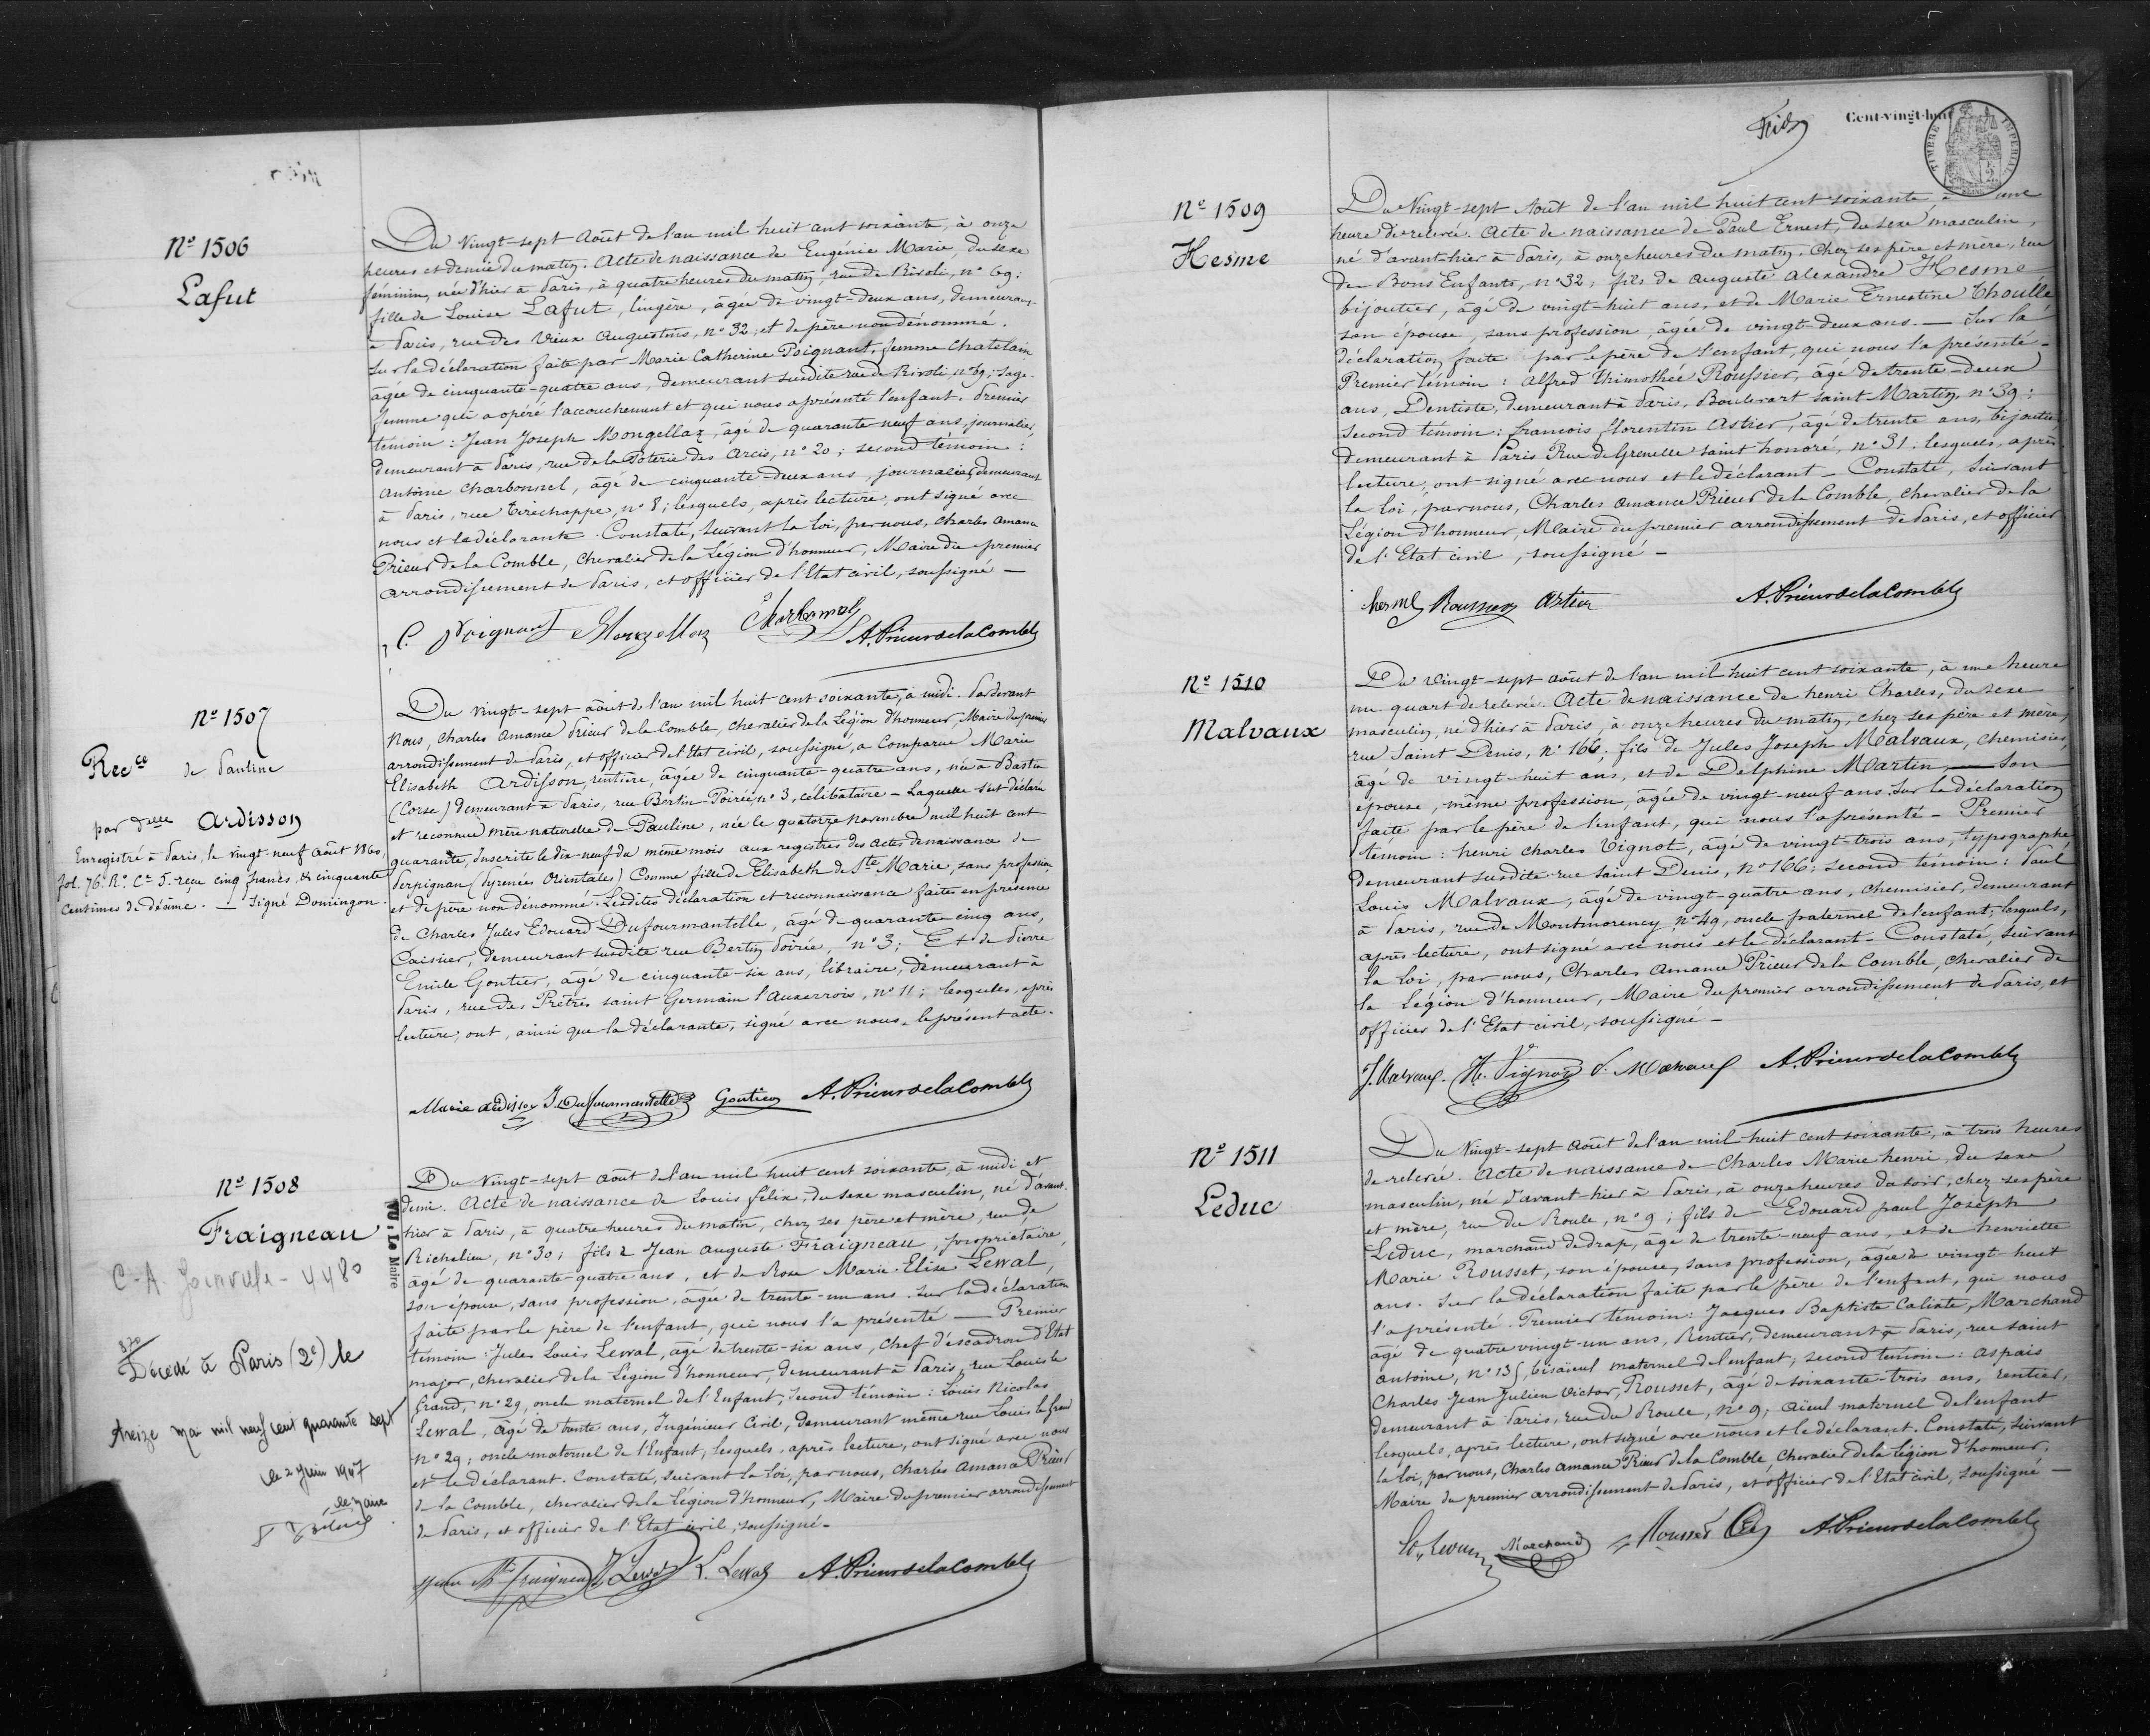 Nº 1506
Lafut
Du Vingt-sept Août de l'an mil huit cent soixante, à onze
heures et demie du matin. Acte de naissance de Eugénie Marie, du sexe
féminin, née d'hier à Paris, à quatre heures du matin, rue de Rivoli, nº 69;
fille de Louise Lafut, lingère, âgée de vingt-deux ans, demeurant
à Paris, rue des Vieux Augustins, nº 32; et de père non dénommé.
Sur la déclaration faite par Marie Catherine Poignant, femme Chatelain
âgée de cinquante-quatre ans, demeurant susdite rue de Rivoli, nº 69; sage-
femme qui a opéré l'accouchement et qui nous a présenté l'enfant. Premier
témoin: Jean Joseph Mongellaz, âgé de quarante neuf ans, journalier,
demeurant à Paris, rue de la Poterie des Arcis, nº 20; second témoin:
Antoine Charbonnel, âgé de cinquante-deux ans, journalier, demeurant
à Paris, rue Tirechappe, nº 8; lesquels, après lecture, ont signé avec
nous et la déclarante. Constaté, suivant la loi, par nous, Charles Amance
Prieur de la Comble, chevalier de la Légion d'honneur, Maire du premier
arrondissement de Paris, et officier de l'Etat civil, soussigné —
C. Poignant Mongellaz Charbonnel A. Prieur de la Comble
Nº 1507
Recce
de Pauline
par Delle Ardisson
Enregistré à Paris, le vingt-neuf Août 1860,
fol. 76. Rº. Cº 5. reçu cinq francs, & cinquante
centimes de décime. — Signé Domingon.
Du vingt-sept août de l'an mil huit cent soixante, à midi. Pardevant
Nous, Charles Amance Prieur de la Comble, chevalier de la Légion d'honneur, Maire du premier
arrondissement de Paris, et officier de l'Etat civil, soussigné, a comparue Marie
Elisabeth Ardisson, rentière, âgée de cinquante-quatre ans, née à Bastia
(Corse) demeurant à Paris, rue Bertin-Poirée, nº 3, célibataire — Laquelle s'est déclarée
et reconnue mère naturelle de Pauline, née le quatorze Novembre mil huit cent
quarante, inscrite le dix-neuf du même mois aux registres des actes de naissance de
Perpignan (Pyrénées Orientales) comme fille de Elisabeth de Ste Marie, sans profession,
et de père non dénommé. Lesdites déclaration et reconnaissance faite en présence
de Charles Jules Edouard Dufourmantelle, âgé de quarante-cinq ans,
Caissier, demeurant susdite rue Bertin Poirée, nº 3; Et de Pierre
Emile Goutier, âgé de cinquante-six ans, libraire, demeurant à
Paris, rue des Prêtres saint Germain l'Auxerrois, nº 11; lesquels, après
lecture, ont, ainsi que la déclarante, signé avec nous le présent acte.
Marie Ardisson J. Dufourmantelle Goutier A. Prieur de la Comble
Nº 1508
Fraigneau
C-A. Joinville - 4480
VU: Le Maire
870
Décédé à Paris (2e) le
treize mai mil neuf cent quarante sept
le 2 Juin 1947
le Maire
Du Vingt-sept Août de l'an mil huit cent soixante, à midi et
demi. Acte de naissance de Louis Félix, du sexe masculin, né d'avant
hier à Paris, à quatre heures du matin, chez ses père et mère, rue de
Richelieu, nº 30; fils de Jean Auguste Fraigneau, propriétaire,
âgé de quarante-quatre ans, et de Rose Marie Elise Lewal,
son épouse, sans profession, âgée de trente-un ans. Sur la déclaration
faite par le père de l'enfant, qui nous l'a présenté — Premier
témoin: Jules Louis Lewal, âgé de trente-six ans, chef d'escadron d'Etat
major, chevalier de la Légion d'honneur, demeurant à Paris, rue Louis le
Grand, nº 29, oncle maternel de l'Enfant; second témoin: Louis Nicolas
Lewal, âgé de trente ans, Ingénieur Civil, demeurant même rue Louis le Grand
nº 29; oncle maternel de l'Enfant; lesquels, après lecture, ont signé avec nous
et le déclarant. Constaté, suivant la loi, par nous, Charles Amance Prieur
de la Comble, chevalier de la Légion d'honneur, Maire du premier arrondissement
de Paris, et officier de l'Etat civil, soussigné.
Fraigneau J. Lewal L. Lewal A. Prieur de la Comble
Cent-vingt-huit
TIMBRE IMPERIAL
Nº 1509
Hesme
Du Vingt-sept Août de l'an mil huit cent soixante, à une
heure de relevée. Acte de naissance de Paul Ernest, du sexe masculin,
né d'avant-hier à Paris, à onze heures du matin, chez ses père et mère, rue
des Bons Enfants, nº 32; fils de Auguste Alexandre Hesme
bijoutier, âgé de vingt-huit ans, et de Marie Ernestine Thoullé
son épouse, sans profession, âgée de vingt-deux ans. — Sur la
déclaration faite par le père de l'enfant, qui nous l'a présenté —
Premier témoin: Alfred Thimothée Roussier, âgé de trente-deux
ans, Dentiste, demeurant à Paris, Boulevart Saint Martin, nº 39;
second témoin: françois florentin Astier, âgé de trente ans, bijoutier
demeurant à Paris Rue de Grenelle saint honoré, nº 31. lesquels, après
lecture, ont signé avec nous et le déclarant — Constaté, suivant
la loi, par nous, Charles Amance Prieur de la Comble, chevalier de la
Légion d'honneur, Maire du premier arrondissement de Paris, et officier
de l'Etat civil, soussigné —
hesme Roussier Astier A. Prieur de la Comble
Nº 1510
Malvaux
Du Vingt-sept août de l'an mil huit cent soixante, à une heure
un quart de relevée. Acte de naissance de henri Charles, du sexe
masculin, né d'hier à Paris, à onze heures du matin, chez ses père et mère,
rue Saint Denis, nº 166; fils de Jules Joseph Malvaux, chemisier,
âgé de vingt-huit ans, et de Delphine Martin, — son
épouse, même profession, âgée de vingt-neuf ans. Sur la déclaration
faite par le père de l'enfant, qui nous l'a présenté — Premier
témoin: henri Charles Vignot, âgé de vingt-trois ans, typographe,
demeurant susdite rue Saint Denis, nº 166; second témoin: Paul
Louis Malvaux, âgé de vingt-quatre ans, chemisier, demeurant
à Paris, rue de Montmorency, nº 49, oncle paternel de l'enfant; lesquels,
après lecture, ont signé avec nous et le déclarant — Constaté, suivant
la loi, par nous, Charles Amance Prieur de la Comble, chevalier de
la Légion d'honneur, Maire du premier arrondissement de Paris, et
officier de l'Etat civil, soussigné —
J. Malvaux. H. Vignot P. Malvaux A. Prieur de la Comble
Nº 1511
Leduc
Du Vingt-sept Août de l'an mil huit cent soixante, à trois heures
de relevée. Acte de naissance de Charles Marie henri, du sexe
masculin, né d'avant-hier à Paris, à onze heures du soir, chez ses père
et mère, rue du Roule, nº 9; fils de Edouard paul Joseph
Leduc, marchand de drap, âgé de trente-neuf ans, et de henriette
Marie Rousset, son épouse, sans profession, âgée de vingt-huit
ans. Sur la déclaration faite par le père de l'enfant, qui nous
l'a présenté. Premier témoin: Jacques Baptiste Caliste, Marchand
âgé de quatre vingt-un ans, Rentier, demeurant à Paris, rue saint
antoine, nº 135, bisaïeul maternel de l'enfant; second témoin: Aspais
Charles Jean Julien Victor, Rousset, âgé de soixante-trois ans, rentier,
demeurant à Paris, rue du Roule, nº 9; aïeul maternel de l'enfant
lesquels, après lecture, ont signé avec nous et le déclarant. Constaté, suivant
la loi, par nous, Charles Amance Prieur de la Comble, chevalier de la Légion d'honneur,
Maire du premier arrondissement de Paris, et officier de l'Etat civil, soussigné —
Marchand Rousset A. Prieur de la Comble